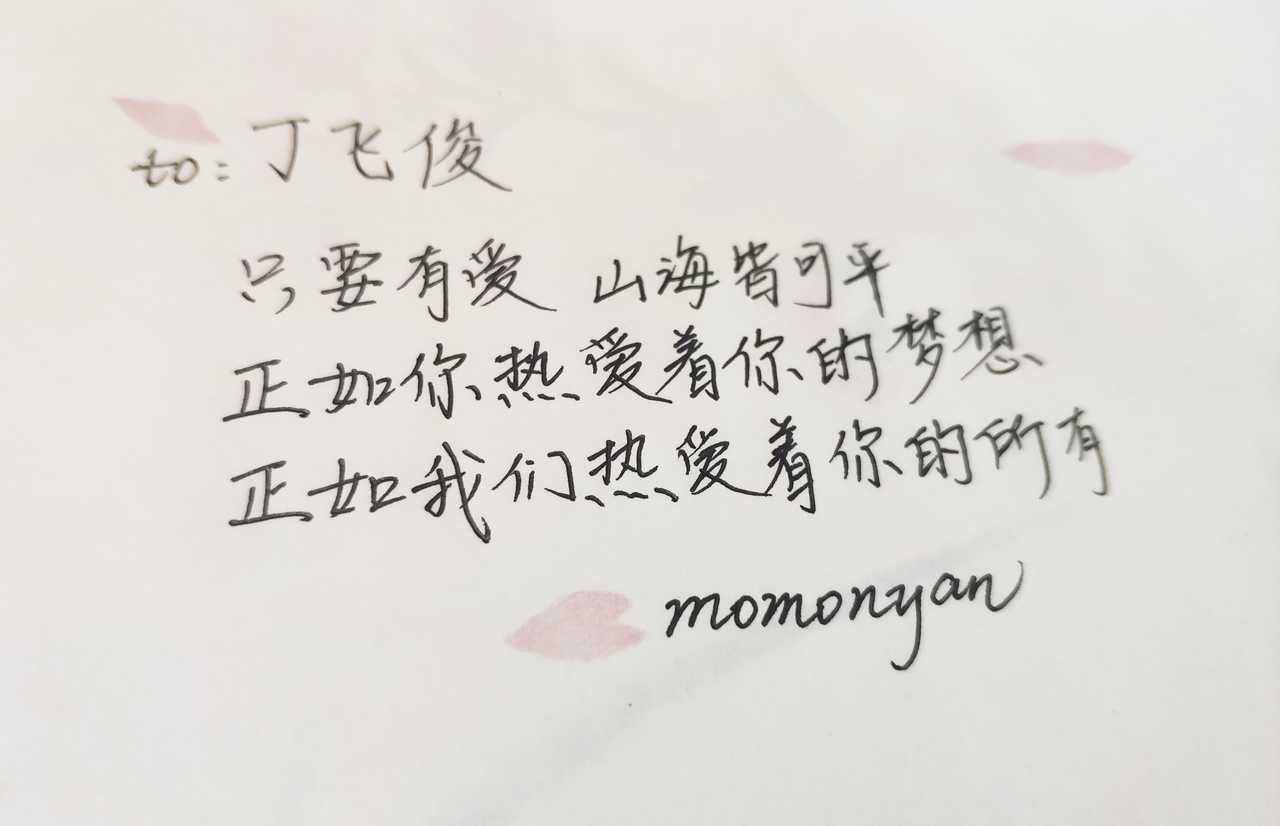 to: 丁飞俊
只要有爱 山海皆可平
正如你热爱着你的梦想
正如我们热爱着你的所有
momonyan